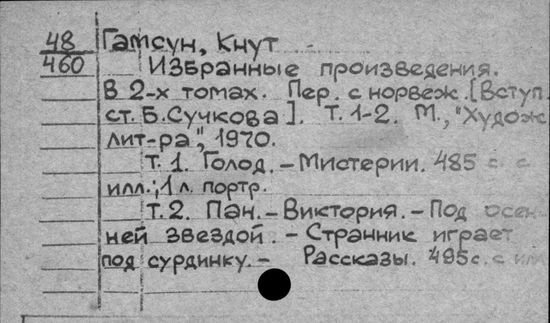 48 Гамсун, Кнут
460 Избранные произведения.
В 2-х томах. Пер. с норвеж. [Вступ.
ст. Б. Сучкова]. Т. 1-2. М., "Худож.
лит-ра", 1970.
Т. 1. Голод. - Мистерии. 485 с. с
илл.; 1 л. портр.
Т. 2. Пан. - Виктория. - Под осен-
ней звездой. - Странник играет
под сурдинку. - Рассказы. 495 с. с илл